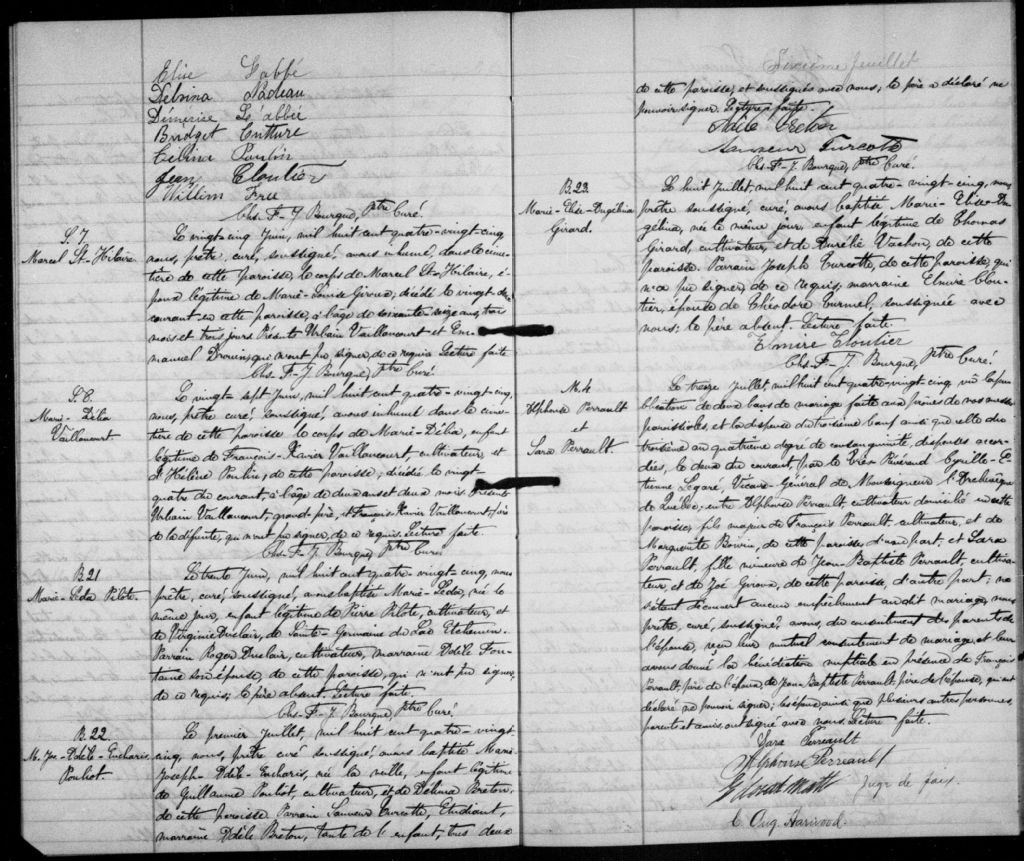 Elise Labbé
Delvina Nadeau
Démérise L'abbée
Bridget Couture
Celvina Poulin
Jean Cloutier
William Free
Chs-F-J Bourque, Ptre Curé.
S. 7
Marcel St-Hilaire
Le vingt-cinq Juin, mil huit cent quatre-vingt-cinq
nous, prêtre, curé, soussigné, avons inhumé, dans le cime-
tière de cette paroisse, le corps de Marcel St-Hilaire, é-
poux légitime de Marie-Louise Giroux; décédé le vingt-
courant en cette paroisse, à l'age de soixante-seize ans, trois
mois et trois jours. Présents Urbain Vaillancourt et Em-
manuel Drouin, qui n'ont pu signer, de ce requis. Lecture faite
Chs-F-J Bourque, Ptre Curé
S 8.
Marie-Délia
Vaillancourt
Le vingt sept Juin, mil huit cent quatre-vingt-cinq,
nous, prêtre curé soussigné, avons inhumé dans le cime-
tière de cette paroisse le corps de Marie-Délia, enfant
légitime de François-Xavier Vaillancourt, cultivateur, et
d'Hélène Poulin, de cette paroisse; décédée le vingt-
quatre du courant, à l'age de deux ans et deux mois. Présents
Urbain Vaillancourt, grand-père, et François-Xavier Vaillancourt, père
de la défunte, qui n'ont pu signer, de ce requis. Lecture faite.
Chs-F-J Bourque, Ptre Curé
B 21
Marie-Léda Pelote.
Le trente Juin, mil huit cent quatre-vingt-cinq, nous
prêtre, curé, soussigné, avons baptisé Marie-Léda, née le
même jour, enfant légitime de Pierre Pelote, cultivateur, et
de Virginie Duclair, de Sainte-Germaine du Lac Etchemin.
Parrain Roger Duclair, cultivateur, marraine Adèle Fon-
taine son épouse, de cette paroisse, qui n'ont pu signer,
de ce requis; le père absent. Lecture faite.
Chs-F-J Bourque, Ptre Curé
B 22
M. Jos-Adèle-Eucharis
Pouliot
Le premier Juillet, mil huit cent quatre-vingt
cinq, nous, prêtre curé soussigné, avons baptisé Marie-
Joseph-Adèle-Eucharis, née la veille, enfant légitime
de Guillaume Pouliot, cultivateur, et de Délima Breton,
de cette paroisse. Parrain Sauveur Turcotte, Etudiant,
marraine Adèle Breton, tante de l'enfant, tous deux
Sixième feuillet
de cette paroisse, et soussignés avec nous; le père a déclaré ne
pouvoir signer. Lecture faite.
Adèle Breton
Sauveur Turcotte
Chs-F-J Bourque, Ptre Curé.
B 23
Marie-Elise-Angélina
Girard.
Le huit Juillet, mil huit cent quatre-vingt-cinq, nous
prêtre soussigné, curé, avons baptisé Marie-Elise-An-
gélina, née le même jour, enfant légitime de Thomas
Girard, cultivateur, et de Aurélie Vachon, de cette
paroisse. Parrain Joseph Turcotte, de cette paroisse, qui
n'a pu signer, de ce requis, marraine Elmire Clou-
tier, épouse de Théodore Turmel, soussignée avec
nous; le père absent. Lecture faite.
Elmire Cloutier
Chs-F-J. Bourque, Ptre Curé.
M. 4
Alphonse Perrault
et
Sara Perrault.
Le treize Juillet, mil huit cent quatre-vingt cinq vû la pu-
blication de deux bans de mariage faite aux prônes de nos messes
paroissiales, et la dispense du troisième banc ainsi que celle du
troisième au quatrième degré de consanguinité, dispenses accor-
dées, le deux du courant, par le Très Révérend Cyrille-E-
tienne Légaré, Vicaire-Général de Monseigneur l'Archevêque
de Québec; entre Alphonse Perrault, cultivateur domicilié en cette
paroisse, fils majeur de François Perrault, cultivateur, et de
Marguerite Boivin, de cette paroisse d'une part; et Sara
Perrault, fille mineure de Jean-Baptiste Perrault, cultiva-
teur, et de Zoé Giroux, de cette paroisse d'autre part; ne
s'étant découvert aucun empêchement au dit mariage, nous
prêtre, curé, soussigné, avons, du consentement des parents de
l'épouse, reçu leur mutuel consentement de mariage, et leur
avons donné la bénédiction nuptiale en présence de François
Perrault, père de l'époux, de Jean-Baptiste Perrault, père de l'épouse, qui ont
déclaré ne pouvoir signer; les époux ainsi que plusieurs autres personnes
parents et amis ont signé avec nous. Lecture faite.
Sara Perreault
Alphonse Perreault
Juge de paix
C. Aug. Harwood.